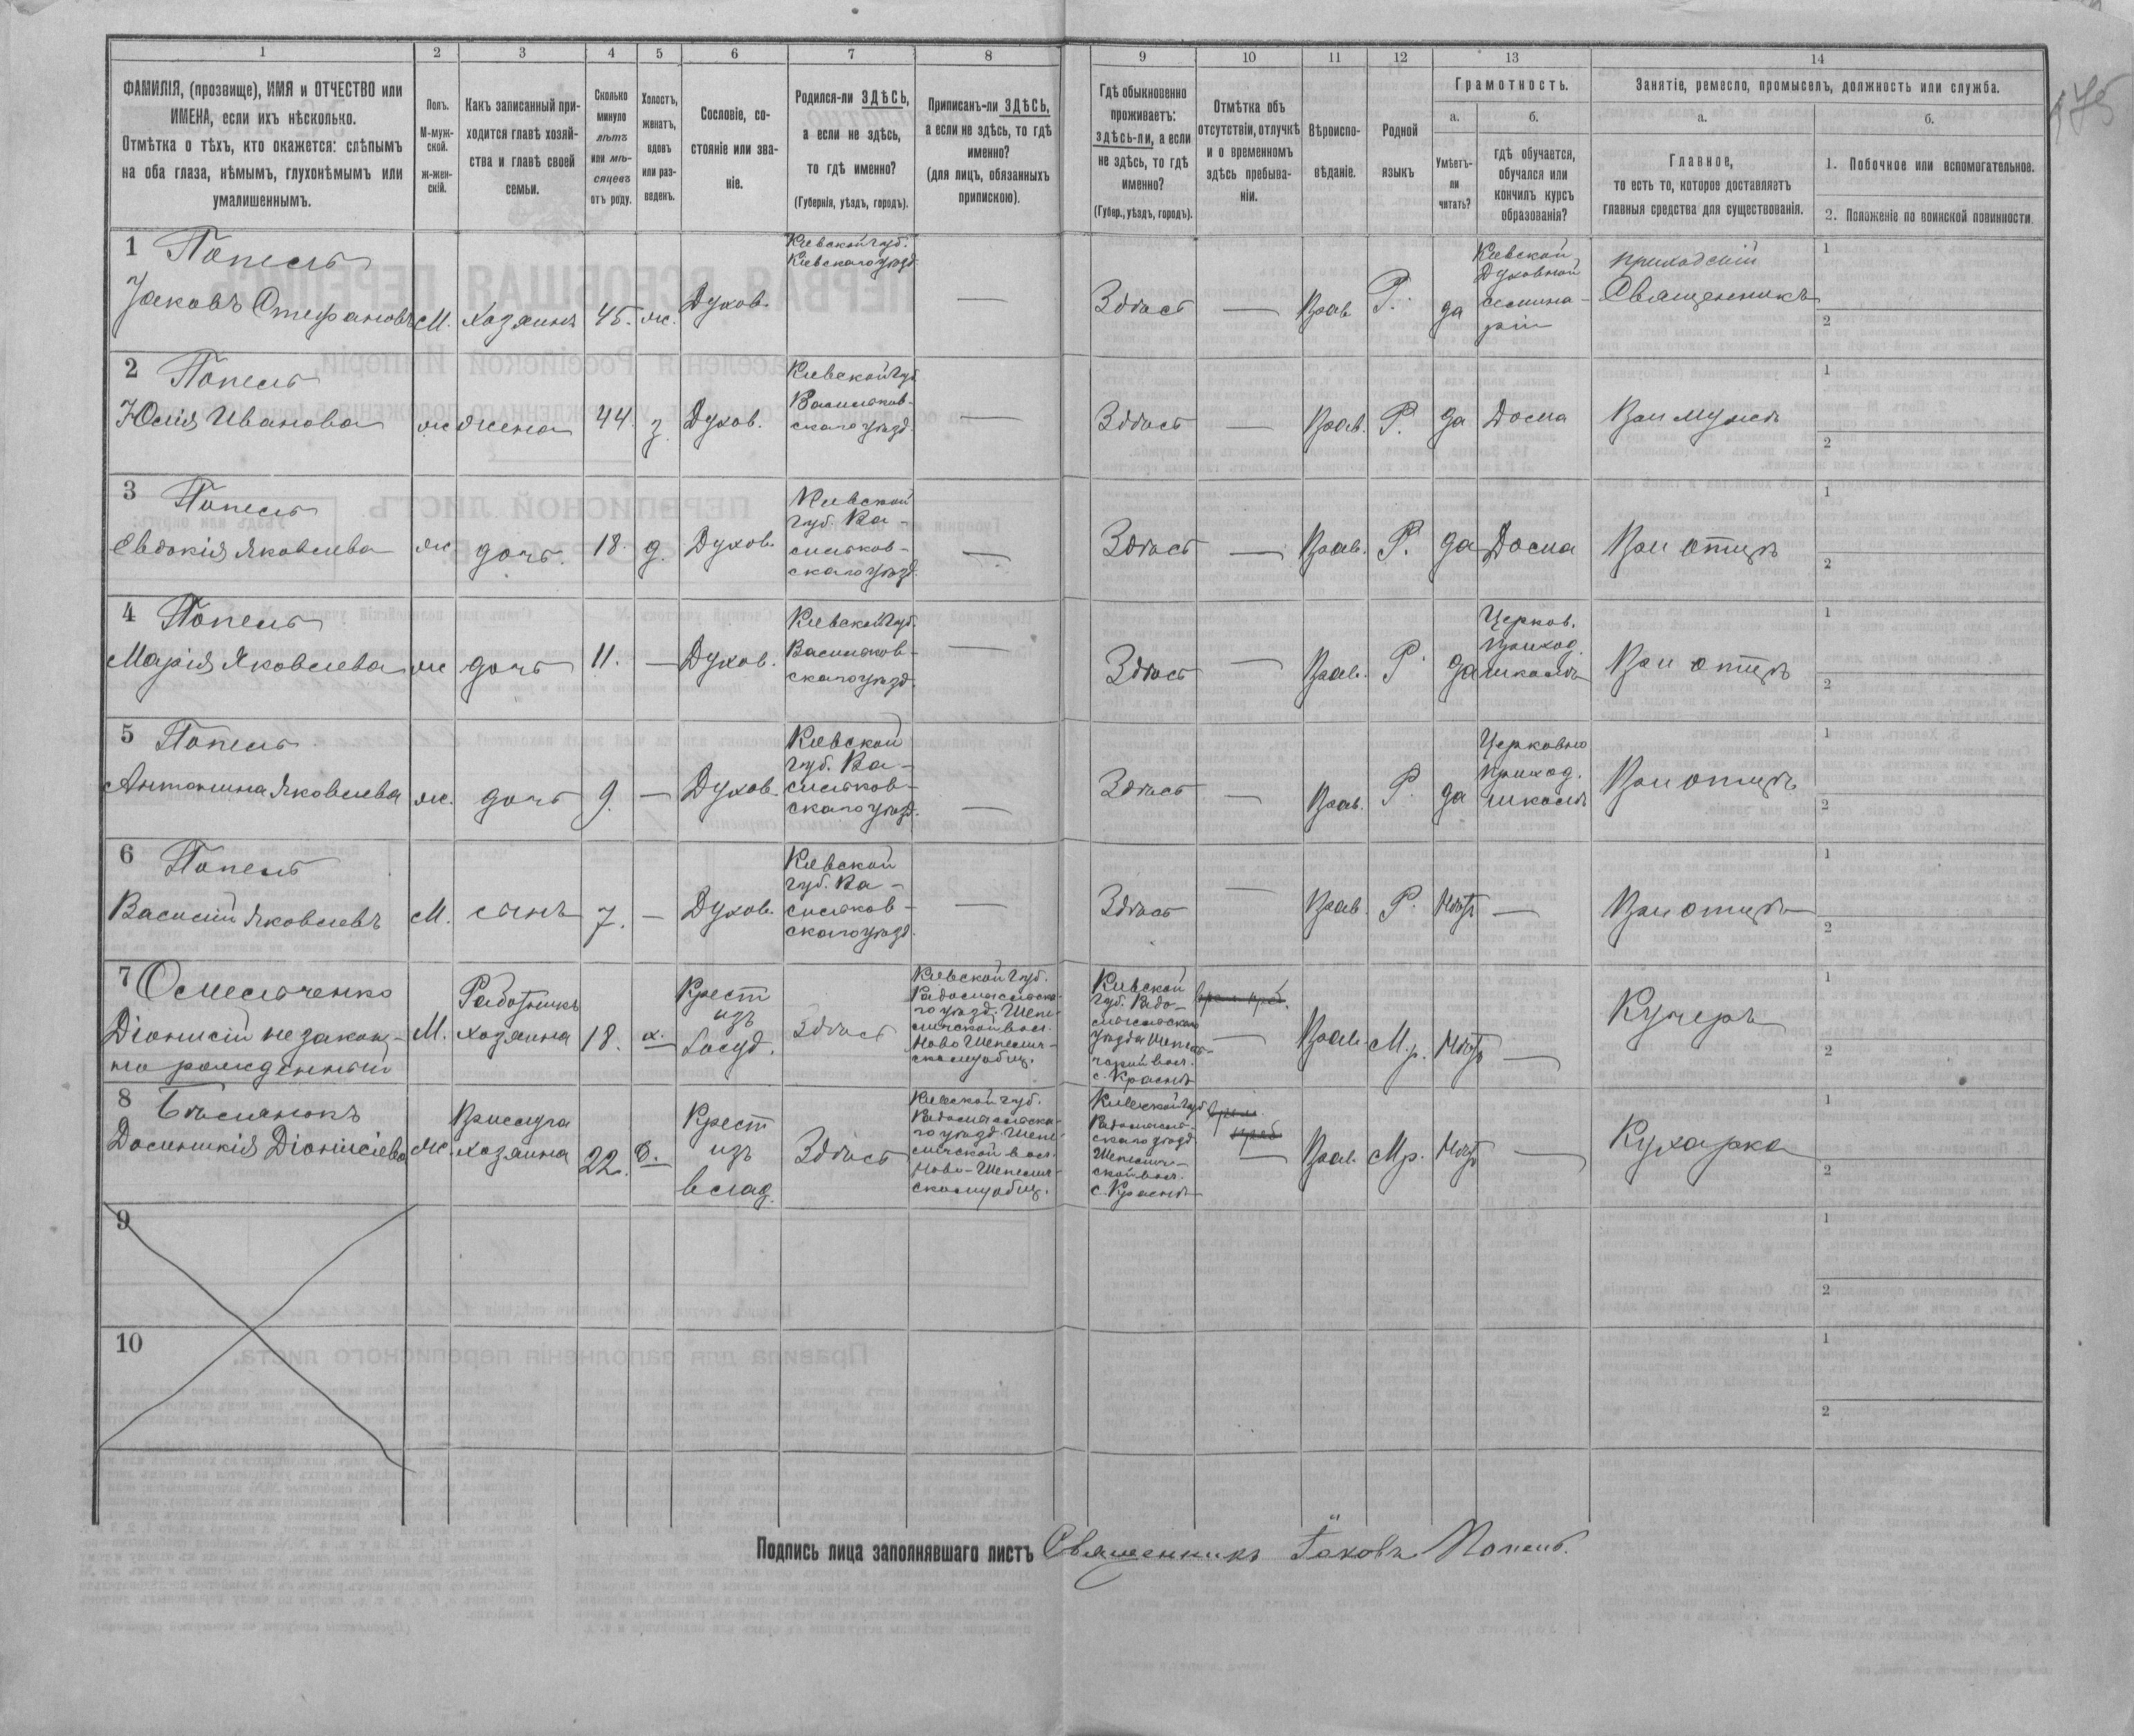 1 2 3 4 5 6 7 8 9 10 11 12 13 14
ФАМИЛІЯ, (прозвище), ИМЯ и ОТЧЕСТВО или
ИМЕНА, если ихъ нѣсколько.
Отмѣтка о тѣхъ, кто окажется: слѣпымъ
на оба глаза, нѣмымъ, глухонѣмымъ или
умалишеннымъ.
Полъ.
М-муж-
ской.
ж-жен-
скій.
Какъ записанный при-
ходится главѣ хозяй-
ства и главѣ своей
семьи.
Сколько
минуло
лѣтъ
или мѣ-
сяцевъ
отъ роду.
Холостъ,
женатъ,
вдовъ
или раз-
веденъ.
Сословіе, со-
стояніе или зва-
ніе.
Родился-ли ЗДѢСЬ,
а если не здѣсь,
то гдѣ именно?
(Губернія, уѣздъ, городъ).
Приписанъ-ли ЗДѢСЬ,
а если не здѣсь, то гдѣ
именно?
(для лицъ, обязанныхъ
припискою).
Гдѣ обыкновенно
проживаетъ:
здѣсь-ли, а если
не здѣсь, то гдѣ
именно?
(Губер., уѣздъ, городъ).
Отмѣтка объ
отсутствіи, отлучкѣ
и о временномъ
здѣсь пребыва-
ніи.
Вѣроиспо-
вѣданіе.
Родной
языкъ
Грамотность.
а.
Умѣетъ-
ли
читать?
б.
гдѣ обучается,
обучался или
кончилъ курсъ
образованія?
Занятіе, ремесло, промыселъ, должность или служба.
а.
Главное,
то есть то, которое доставляетъ
главныя средства для существованія.
б.
1. Побочное или вспомогательное.
2. Положеніе по воинской повинности.
475
1 Попель
Іаковъ Стефановъ
М. Хозяинъ 45. ж. Духов.
Кіевской губ.
Кіевскаго уѣзд.
—
Здѣсь — Прав. Р. да
Кіевской
Духовной
семина-
ріи
приходскій
Священникъ
1
2
2 Попель
Юлія Иванова
ж жена 44. з. Духов.
Кіевской губ
Васильков-
скаго уѣзд.
—
Здѣсь — Прав. Р. да Дома При мужѣ
1
2
3 Попель
Евдокія Яковлева
ж дочь. 18. д. Духов.
Кіевской
губ. Ва-
сильков-
скаго уѣзд.
—
Здѣсь — Прав. Р. да Дома При отцѣ
1
2
4 Попель
Марія Яковлева
ж дочь 11. — Духов.
Кіевской губ.
Васильков-
скаго уѣзд.
—
Здѣсь — Прав. Р. да
Церков.
приход.
школѣ
При отцѣ
1
2
5 Попель
Антонина Яковлева
ж. дочь 9. — Духов.
Кіевской
губ. Ва-
сильков-
скаго уѣзд.
—
Здѣсь — Прав. Р. да
Церковно
приход.
школѣ
При отцѣ
1
2
6 Попель
Василій Яковлевъ
М. сынъ 7. — Духов.
Кіевской
губ. Ва-
сильков-
скаго уѣзд.
—
Здѣсь — Прав. Р. Нѣтъ — При отцѣ
1
2
7 Омельченко
Діонисій незакон-
но рожденный
М.
Работникъ
хозяина
18. х.
Крест
изъ
Госуд.
Здѣсь
Кіевской губ.
Радомысльска-
го уѣзд. Шепе-
личской вол.
Ново Шепелич-
скому общ.
Кіевской
губ. Радо-
мысльскаго
уѣзда Шепели-
чской вол.
с. Краснѣ
врем. преб.
— Прав. М.р. Нѣтъ — Кучеръ
1
2
8
Домникія Діонисіева
ж.
Прислуга
хозяина
22. д.
Крест
изъ
влад.
Здѣсь
Кіевской губ.
Радомысльска-
го уѣзд. Шепе-
личской вол.
Ново-Шепелич-
скому общ.
Кіевской губ.
Радомысль-
скаго уѣзд
Шепелич-
ской вол.
с. Краснѣ
врем.
преб
— Прав. Мр. Нѣтъ — Кухарка
1
2
9
1
2
10
1
2
Подпись лица заполнявшаго листъ Священникъ Іаковъ Попель.